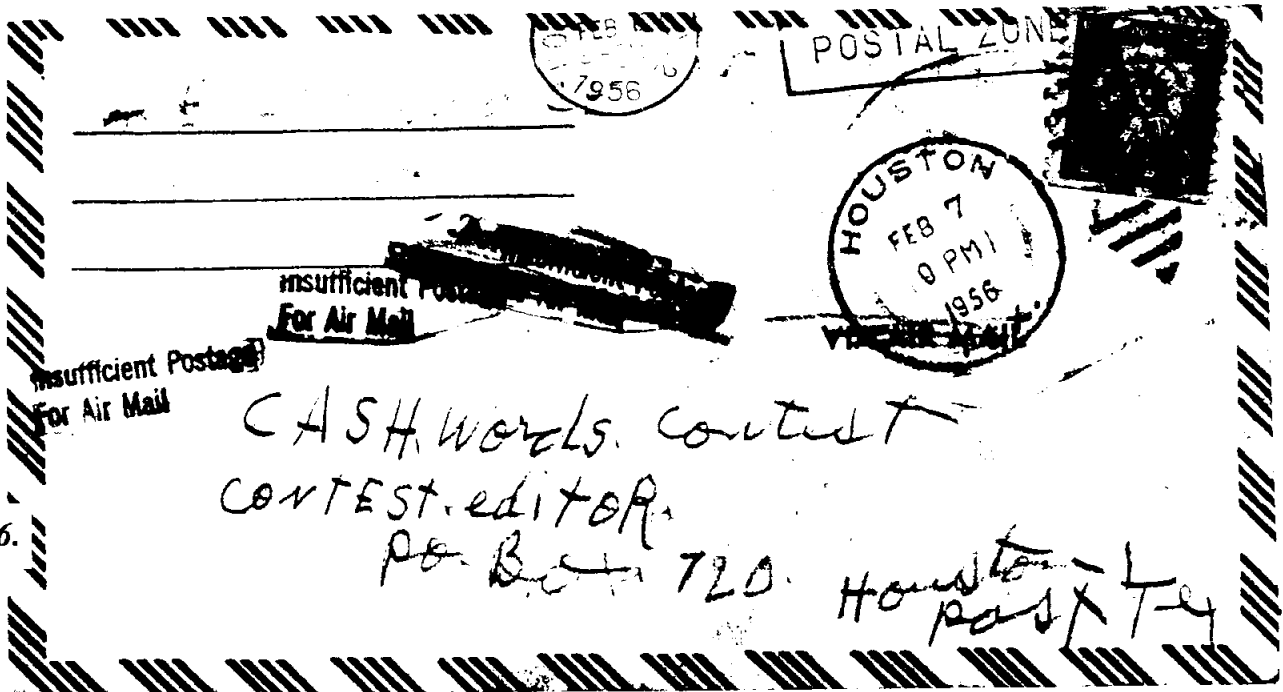 FEB
1956
POSTAL ZONE
HOUSTON
FEB 7
PM
1956
VIA AIR MAIL
Insufficient Postage
For Air Mail
Insufficient Postage
For Air Mail
CASH Words. Contest
CONTEST. editOR.
PO. Box 720. Houston
Post Tex
6.